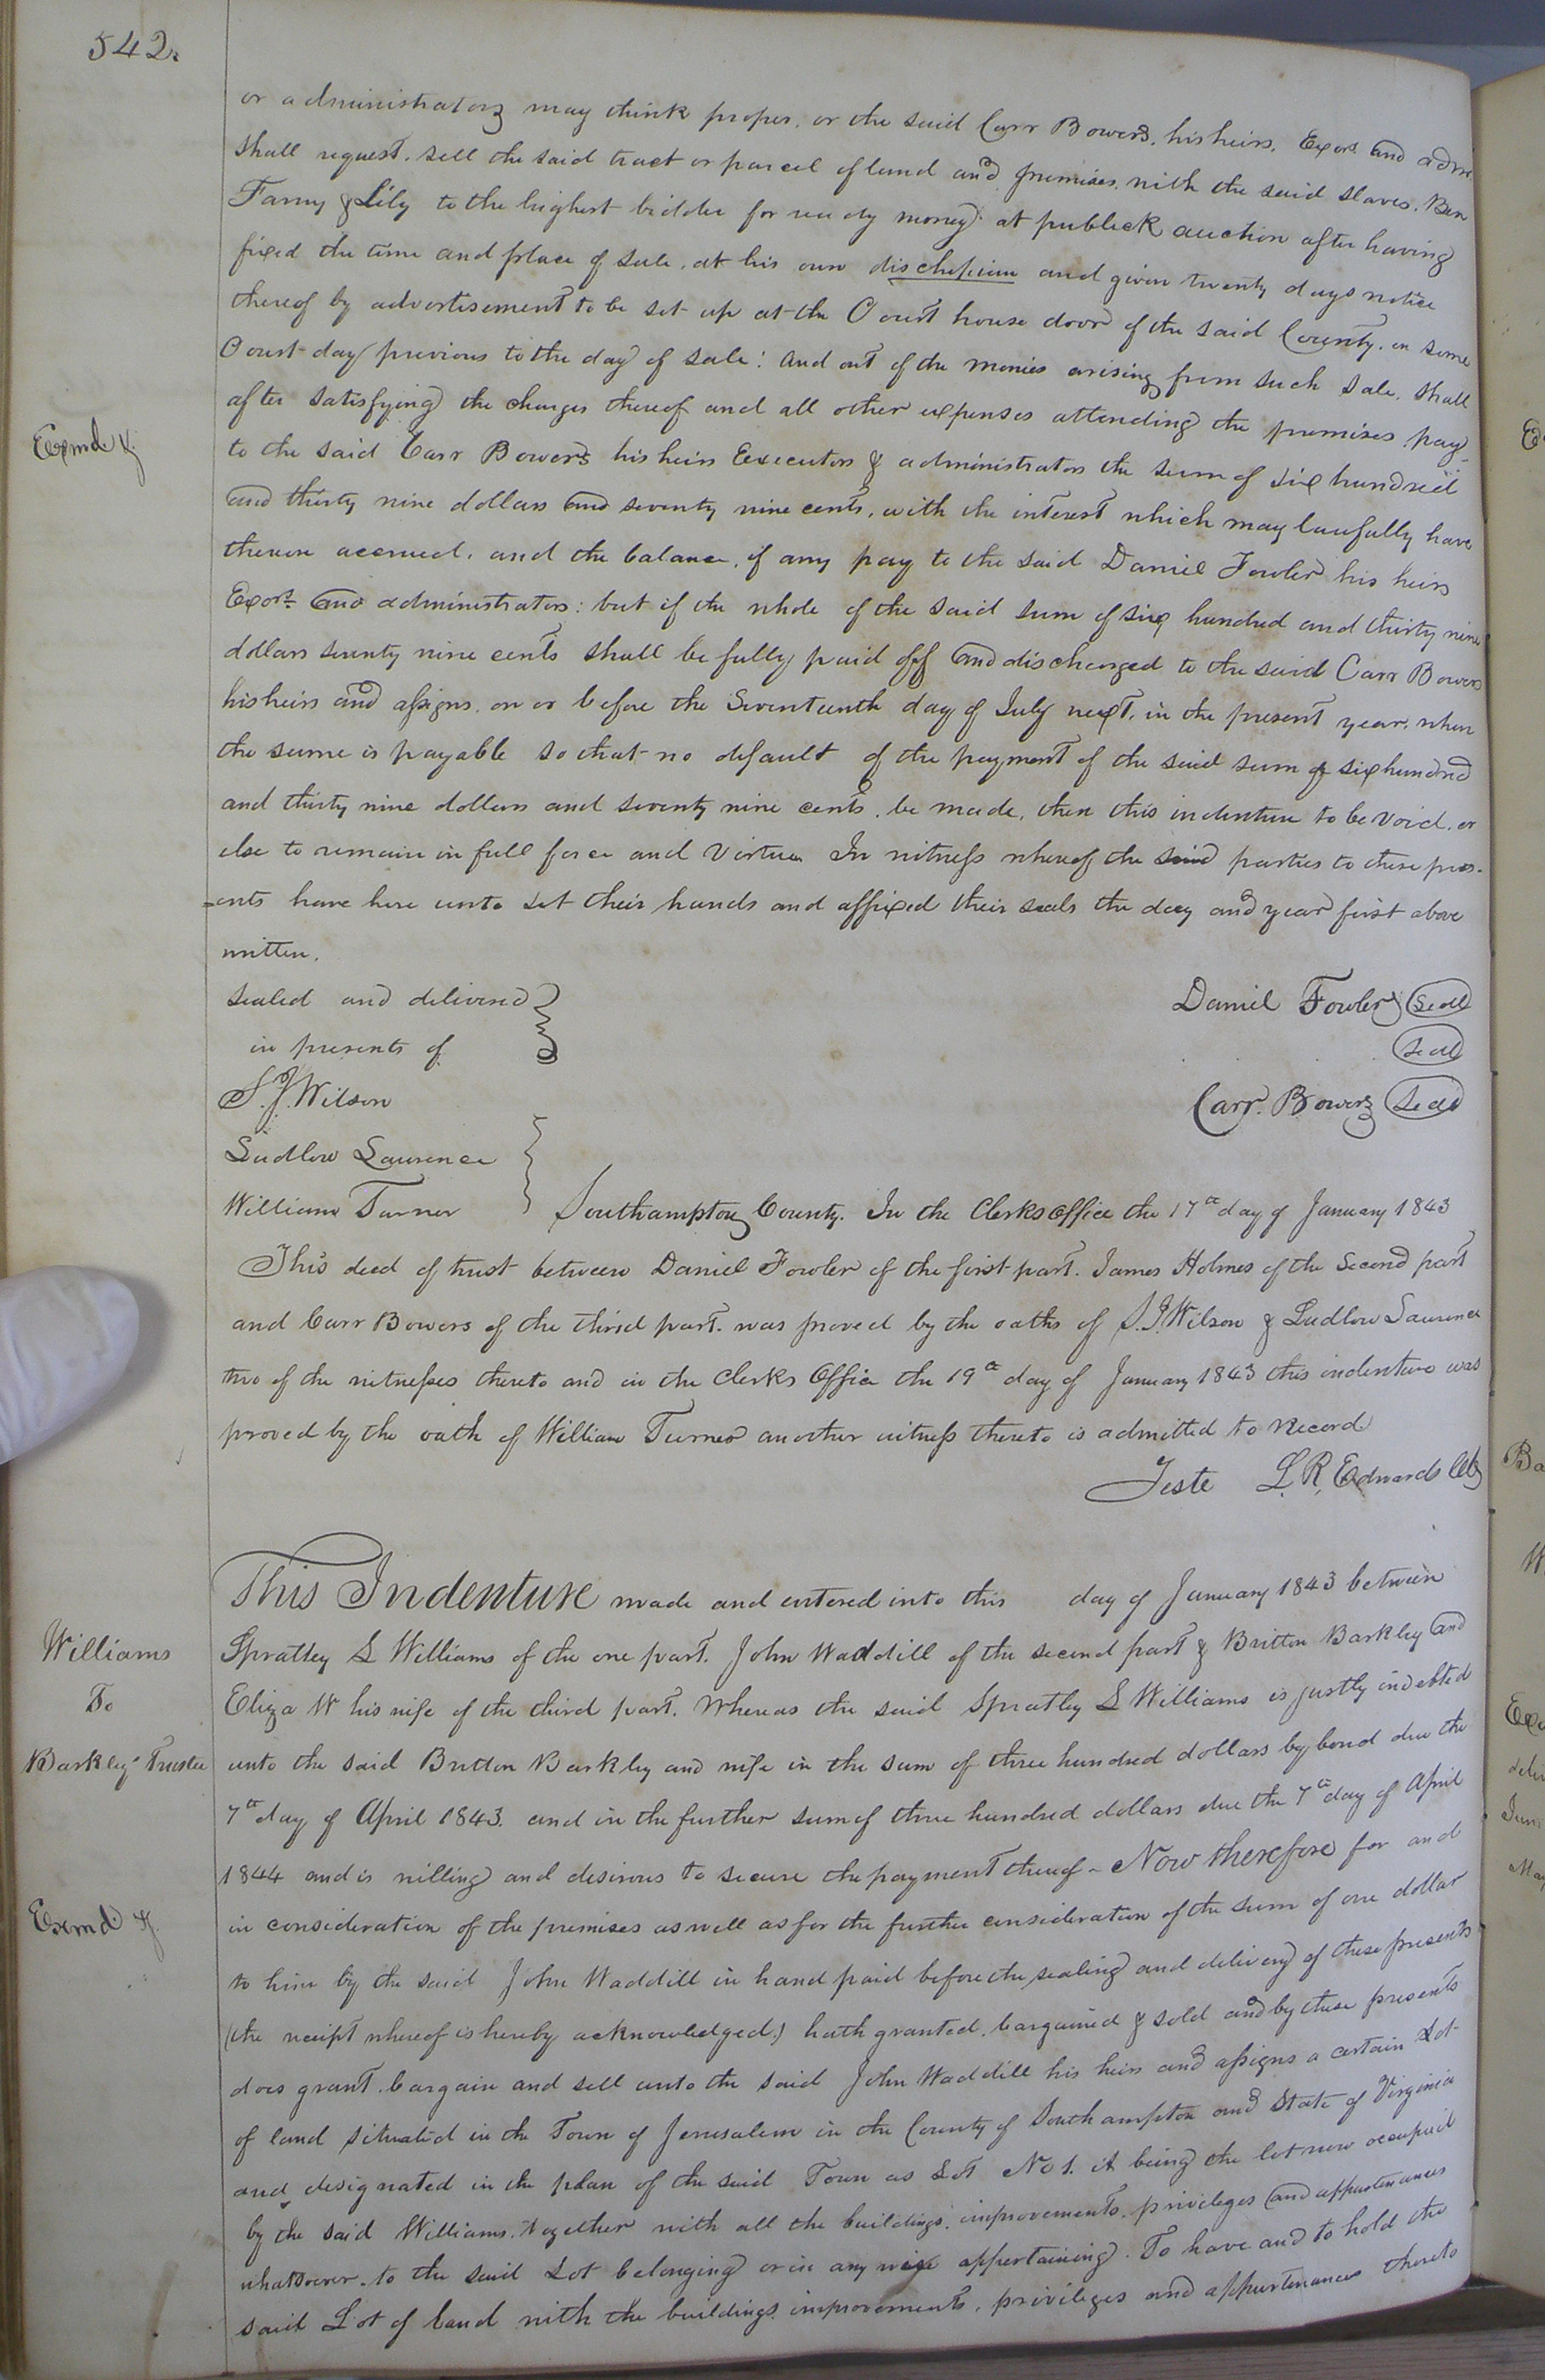 542.
or administrators may think proper, or the said Carr Bowers, his heirs, Exors and adms
shall request, sell the said tract or parcel of land and premises, with the said slaves, Ben
Fanny & Lily to the highest bidder for ready money at publick auction after having
fixed the time and place of sale, at his own and given twenty days notice
thereof by advertisement to be set up at the Court house door of the said County, on some
Court day previous to the day of sale: and out of the monies arising from such sale, shall
after satisfying the charges thereof and all other expenses attending the premises pay
Exmd &
to the said Carr Bowers his heirs Executors & administrators the sum of six hundred
and thirty nine dollars and seventy nine cents, with the interest which may lawfully have
thereon accrued, and the balance, if any pay to the said Daniel Fowler his heirs
Exors and administrators: but if the whole of the said sum of six hundred and thirty nine
dollars seventy nine cents shall be fully paid off and discharged to the said Carr Bowers
his heirs and assigns, on or before the Seventeenth day of July next, in the present year, when
the same is payable so that no default of the payment of the said sum of six hundred
and thirty nine dollars and seventy nine cents, be made, then this indenture to be void, or
else to remain in full force and virtue In witness whereof the said parties to these pres-
=ents have here unto set their hands and affixed their seals the day and year first above
written.
sealed and delivered
in presents of
Daniel Fowler Seal
Seal
S. J. Wilson
Carr Bowers Seal
Ludlow Laurence
William Turner
Southampton County. In the Clerks Office the 17th day of January 1843
This deed of trust between Daniel Fowler of the first part. James Holmes of the Second part
and Carr Bowers of the third part. was proved by the oaths of S. J. Wilson & Ludlow Laurence
two of the witnesses thereto and in the Clerks Office the 19th day of January 1843 this indenture was
proved by the oath of William Turner another witness thereto is admitted to record
Teste L. R. Edwards Clk
This Indenture made and entered into this day of January 1843 between
Williams
To
Barkley Trustee
Spratley L Williams of the one part. John Waddill of the second part & Britton Barkley and
Eliza W his wife of the third part. Whereas the said Spratley L Williams is justly indebted
unto the said Britton Barkley and wife in the sum of three hundred dollars by bond due the
7th day of April 1843. and in the further sum of three hundred dollars due the 7th day of April
1844 and is willing and desirous to secure the payment thereof - Now therefore for and
Exmd &
in consideration of the premises as well as for the further consideration of the sum of one dollar
to him by the said John Waddill in hand paid before the sealing and delivery of these presents
(the receipt whereof is hereby acknowledged) hath granted, bargained & sold and by these presents
does grant, bargain and sell unto the said John Waddill his heirs and assigns a certain Lot
of land situated in the Town of Jerusalem in the County of Southampton and State of Virginia
and designated in the plan of the said Town as Lot No 1. it being the lot now occupied
by the said Williams, together with all the buildings, improvements, privileges and appurtenances
whatsoever. to the said Lot belonging or in any wise appertaining. To have and to hold the
said Lot of land with the buildings, improvements, privileges and appurtenances thereto